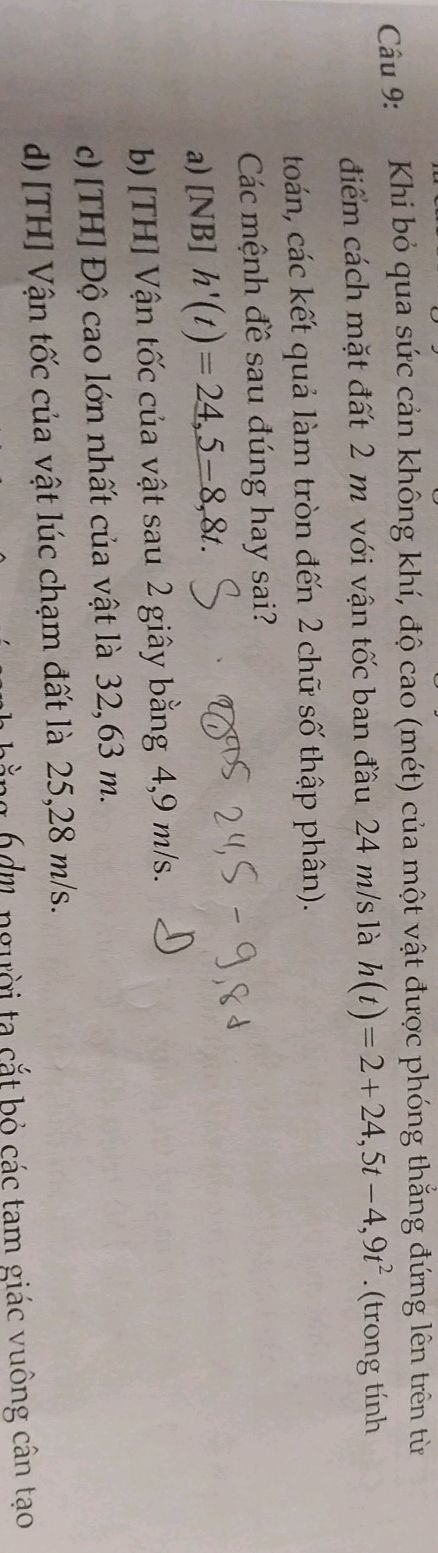 Câu 9: Khi bỏ qua sức cản không khí, độ cao (mét) của một vật được phóng thẳng đứng lên trên từ
điểm cách mặt đất 2 m với vận tốc ban đầu 24 m/s là h(t) = 2 + 24,5t − 4,9t². (trong tính
toán, các kết quả làm tròn đến 2 chữ số thập phân).
Các mệnh đề sau đúng hay sai?
a) [NB] h'(t) = 24,5 − 8,8t. S
24,5 − 9,8t
b) [TH] Vận tốc của vật sau 2 giây bằng 4,9 m/s. Đ
c) [TH] Độ cao lớn nhất của vật là 32,63 m.
d) [TH] Vận tốc của vật lúc chạm đất là 25,28 m/s.
bằng 6dm, người ta cắt bỏ các tam giác vuông cân tạo